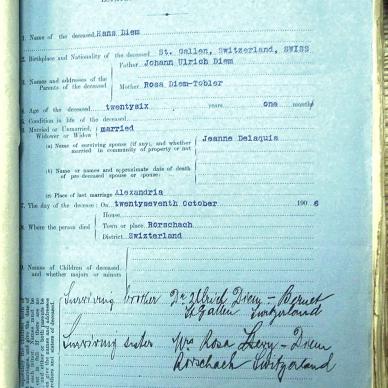 1. Name of the deceased Hans Diem
2. Birthplace and Nationality of the deceased St. Gallen, Switzerland, SWISS
3. Names and addresses of the Parents of the deceased
Father Johann Ulrich Diem
Mother Rosa Diem-Tobler
4. Age of the deceased twentysix years one months
5. Condition in life of the deceased
6. Married or Unmarried, Widower or Widow married
(a) Name of surviving spouse (if any), and whether married in community of property or not Jeanne Delaquis
(b) Name or names and approximate date of death of pre deceased spouse or spouse:
(c) Place of last marriage Alexandria
7. The day of the decease: On twentyseventh October 190 6
8. Where the person died
House
Town or place Rorschach
District Swizterland
9. Names of Children of deceased and whether majors or minors
Surviving brother Dr Ulrich Diem - Bernet
St Gallen Switzerland
Surviving sister Mrs Rosa - Diem
Rorschach Switzerland